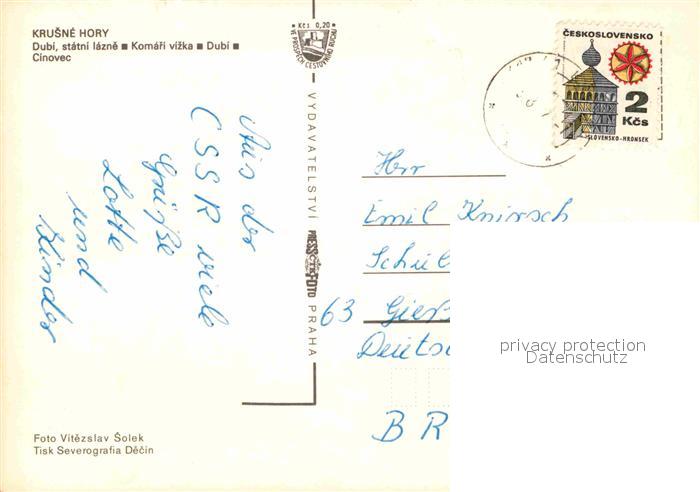 KRUŠNÉ HORY
Dubí, státní lázně ■ Komáří vížka ■ Dubí ■
Cínovec
Kčs 0,20
VE PROSPĚCH CESTOVNÍHO RUCHU
ČESKOSLOVENSKO
2
Kčs
SLOVENSKO-HRONSEK
VYDAVATELSTVÍ PRESSFOTO PRAHA
ČTK
Aus der
CSSR viele
Grüße
Lotte
und
Kinder
Herr
Emil Knirsch
Schül
63 Gieß
Deutsc
BR
privacy protection
Datenschutz
Foto Vítězslav Šolek
Tisk Severografia Děčín